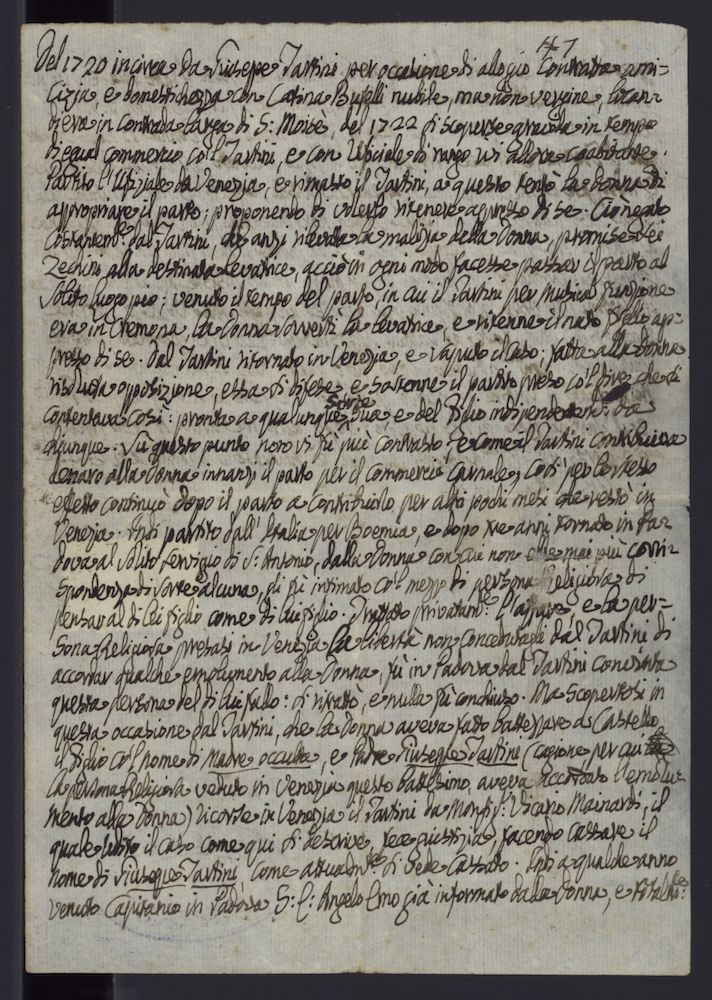 47
Del 1720 incirca da Giuseppe Tartini per occasione di allogio Contratta ami-
cizia, e domestichezza con Catina Buselli nubile, ma non vergine, locan-
diera in Contrada larga di S: Moisè, del 1722 si scoperse gravida in tempo
di egual commercio col Tartini, e con Uficiale di rango ivi allora coabitante.
Partito l'Ufiziale da Venezia, e rimasto il Tartini, a questo tentò la donna di
appropriare il parto; proponendo di volerlo ritenere appresso di se. Ciò negato
costantem.te dal Tartini, che anzi rilevata la malizia della donna, promise sei
Zecchini alla destinata levatrice, acciò in ogni modo facesse passar il parto al
solito luogo pio; venuto il tempo del parto, in cui il Tartini per Musical funzione
era in Cremona, la donna sovvertì la levatrice, e ritenne il nato figlio ap-
presso di se. Dal Tartini ritornato in Venezia, e saputo il caso; fatta alla donna
risoluta opposizione, essa si difese, e sostenne il partito preso col dire, che si
contentava così: pronta a qualunque sorte sua, e del figlio indipendentem.te da
chiunque. Su questo punto non vi fù più contrasto, e come il Tartini contribuiva
denaro alla donna innanzi il parto per il commercio carnale, così per lo stesso
effetto continuò dopo il parto a contribuirlo per altri pochi mesi che restò in
Venezia. Indi partito dall'Italia per Boemia, e dopo tre anni tornato in Pa-
dova al solito servigio di S. Antonio, dalla donna con cui non ebbe mai più corri-
spondenza di sorte alcuna, gli fù intimato col mezzo di persona Religiosa di
pensar al di lei figlio come di lui figlio. Trattato privatam.te l'affare, e la per-
sona Religiosa presasi in Venezia la libertà non concedutagli dal Tartini di
accordar qualche emolumento alla donna, fù in Padova dal Tartini convinta
questa persona del di lui fallo: si ritrattò, e nulla fù conchiuso. Ma scopertosi in
questa occasione dal Tartini, che la donna aveva fatto battezzare a Castello
il figlio col nome di Madre occulta, e Padre Giuseppe Tartini (cagione per cui
la persona Religiosa veduto in Venezia questo battesimo, aveva accordato l'emolu-
mento alla donna) ricorse in Venezia il Tartini da Monsig.r Vicario Mainardi, il
quale udito il caso come qui si descrive, fece giustizia, facendo cassare il
nome di Giuseppe Tartini, come attualm.te si vede cassato. Indi a qualche anno
venuto Capitanio in Padova S: E: Angelo Emo già informato dalla donna, e